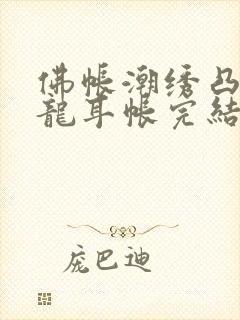 佛帐潮绣凸
龍耳帐完結
庞巴迪